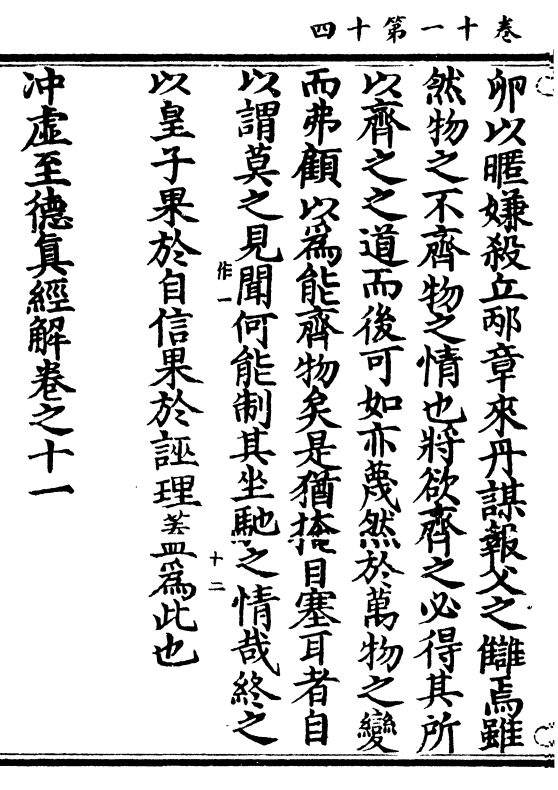 四十第一十卷
卵以暱嫌殺立邴章來丹謀報父之讎焉雖
然物之不齊物之情也將欲齊之必得其所
以齊之之道而後可如亦蔑然於萬物之變
而弗顧以爲能齊物矣是猶掩目塞耳者自
以謂莫之見聞何能制其坐馳之情哉終之
作一
以皇子果於自信果於誣理蓋爲此也
十二
冲虛至德真經解卷之十一